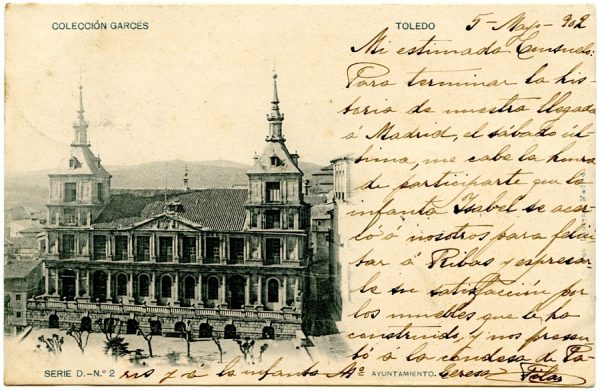 COLECCIÓN GARCÉS
TOLEDO
5-Mayo-902
Mi estimada Consuelo:
Para terminar la his-
toria de nuestra llegada
á Madrid, el sábado úl-
timo, me cabe la honra
de participarte que la
infanta Isabel se acer-
có á nosotros para felici-
tar á Ribas y expresar-
le su satisfacción por
los muebles que le ha
construido, y nos presen-
tó á la condesa de Pa-
rís y á la infanta Mª Teresa.
SERIE D.-N.º 2
AYUNTAMIENTO.